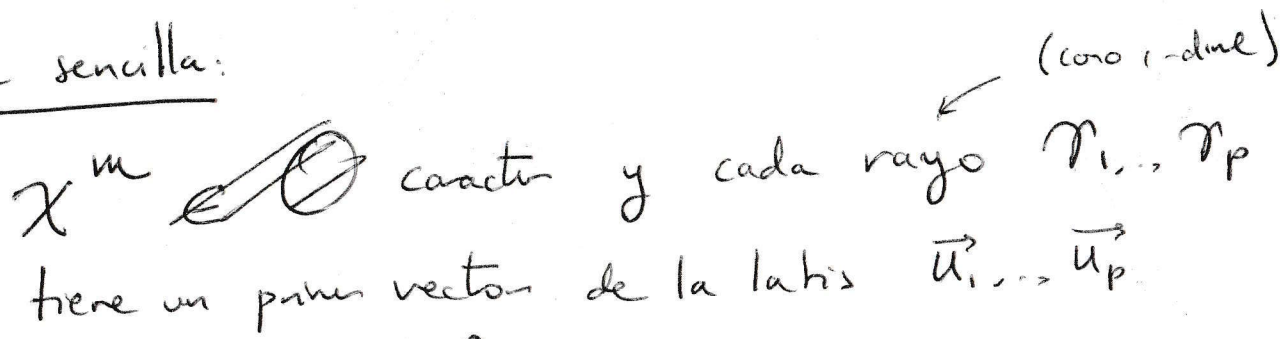 sencilla:
(cono 1-diml)
χ^m carácter y cada rayo γ_1,.., γ_p
tiene un primer vector de la latis u⃗_1,.., u⃗_p